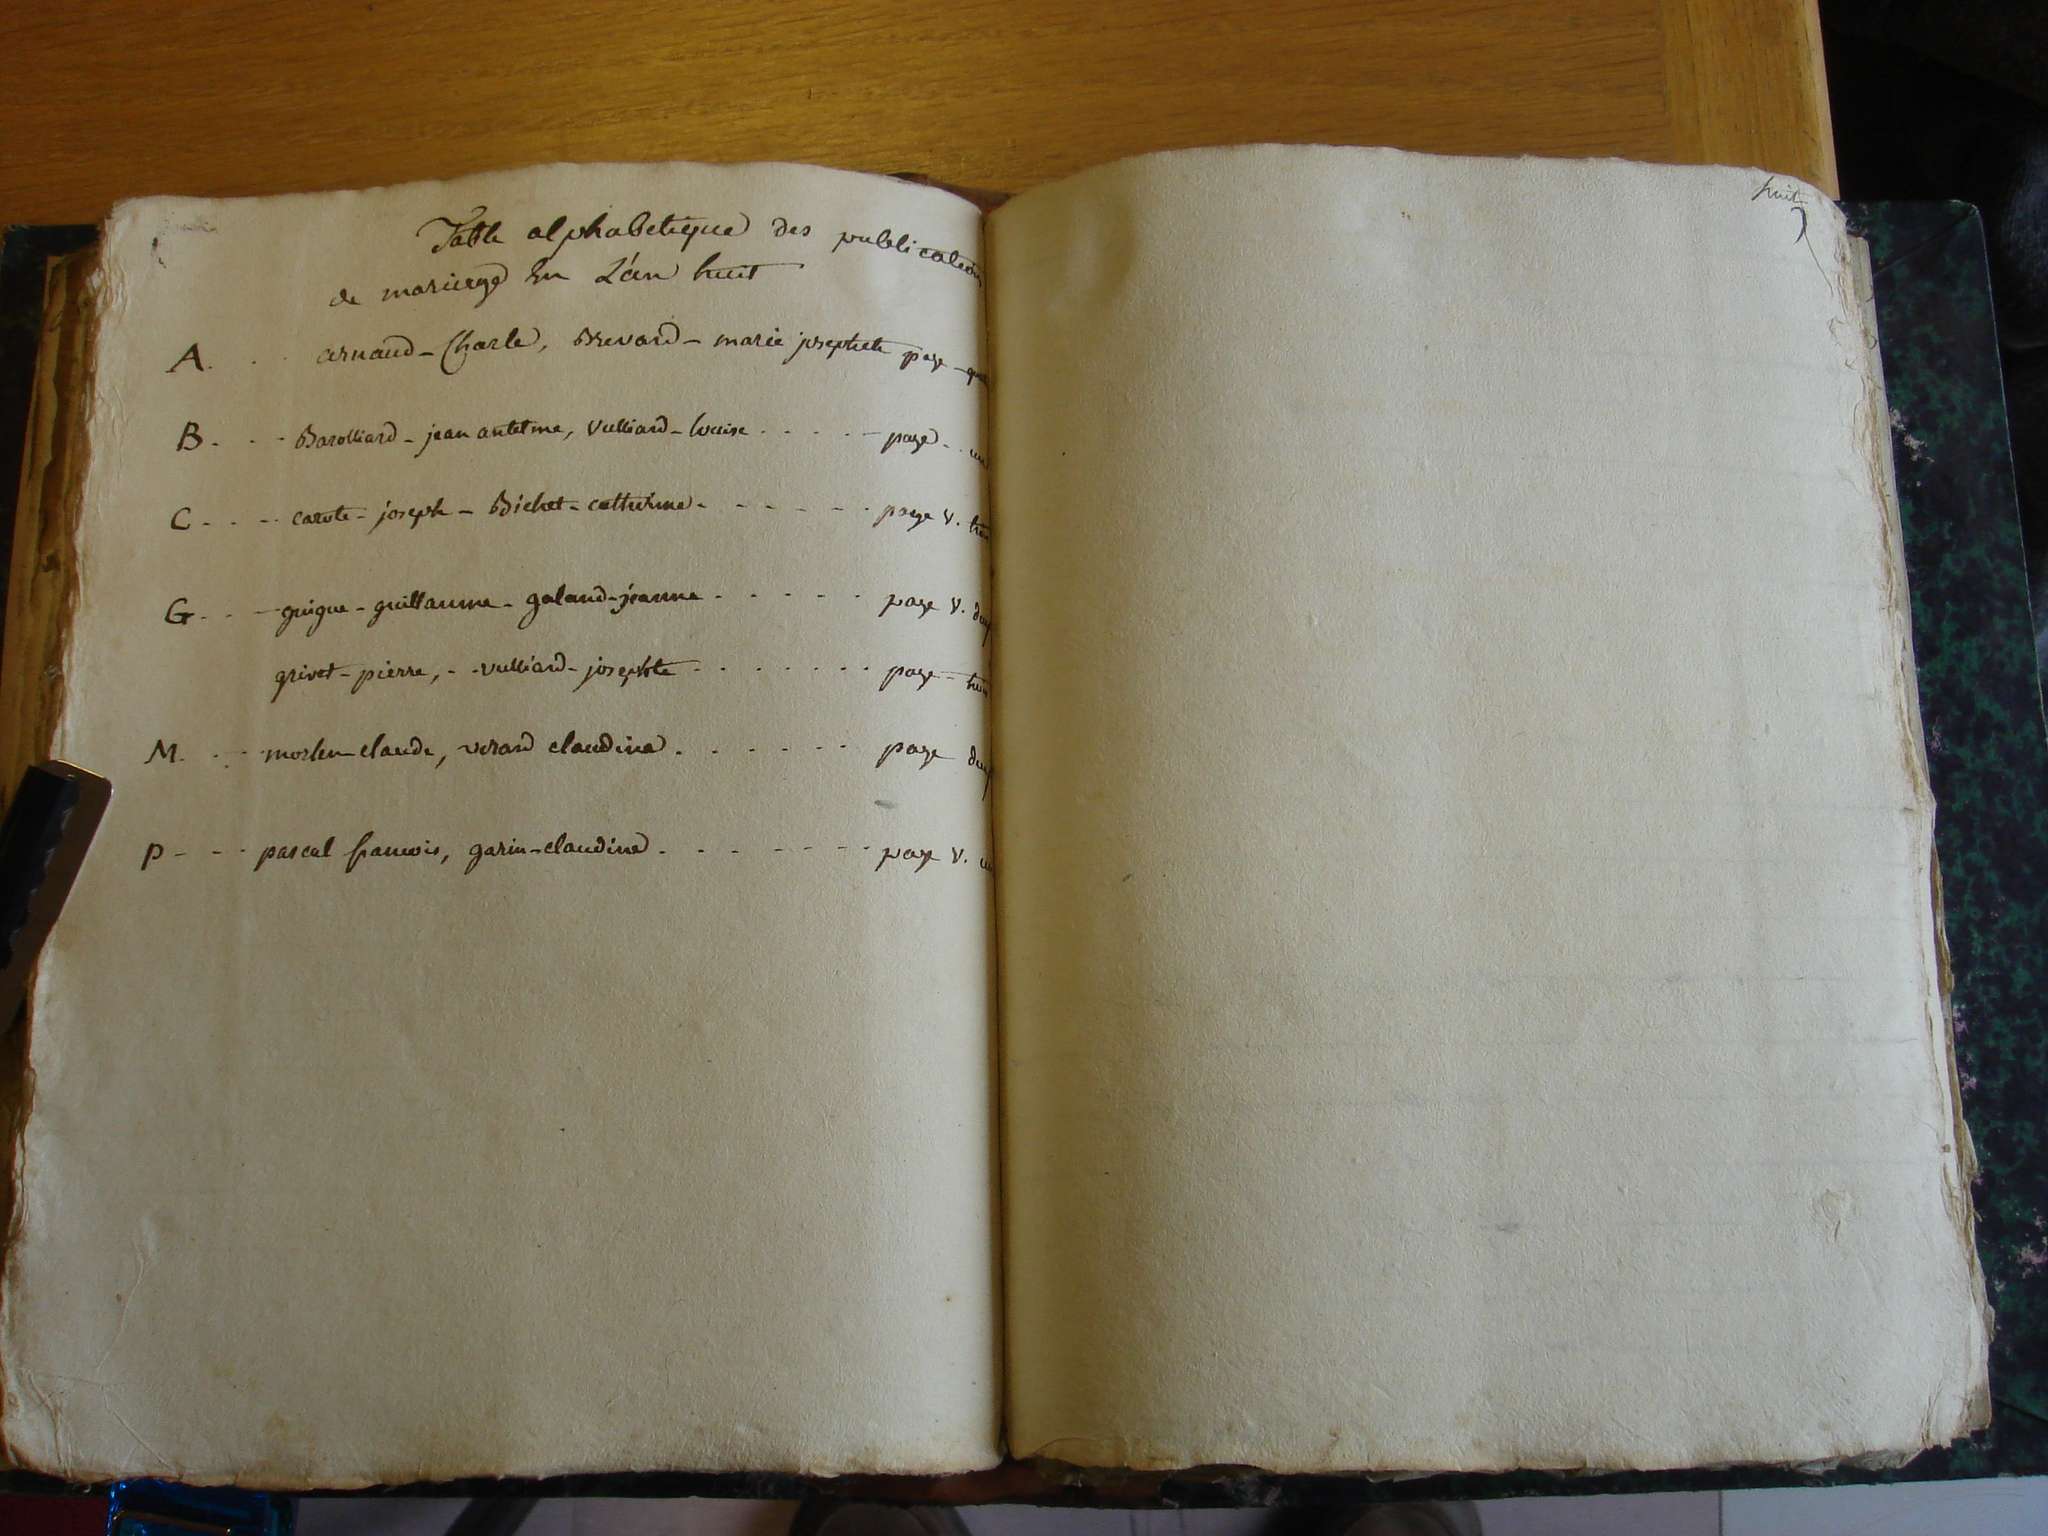 Table alphabetique des publication
de mariage En L'an huit
A. . . arnaud - Charle, Brevard - marie josephete page - qua
B - - - Barolliard - jean antelme, Vulliard - louise - - - - - page - . un
C - - - carote - joseph - Bichet - catherine - - - - - - page V. troi
G - - - guigue - guillaume - galand - jeanne - - - - - page V. deux
grivet - pierre, - - vulliard - josephte - - - - - - - page - troi
M. - - claude, verard claudine - - - - - - page deux
P - - - pascal francois, garin - claudine - - - - - - - page V. un
huit